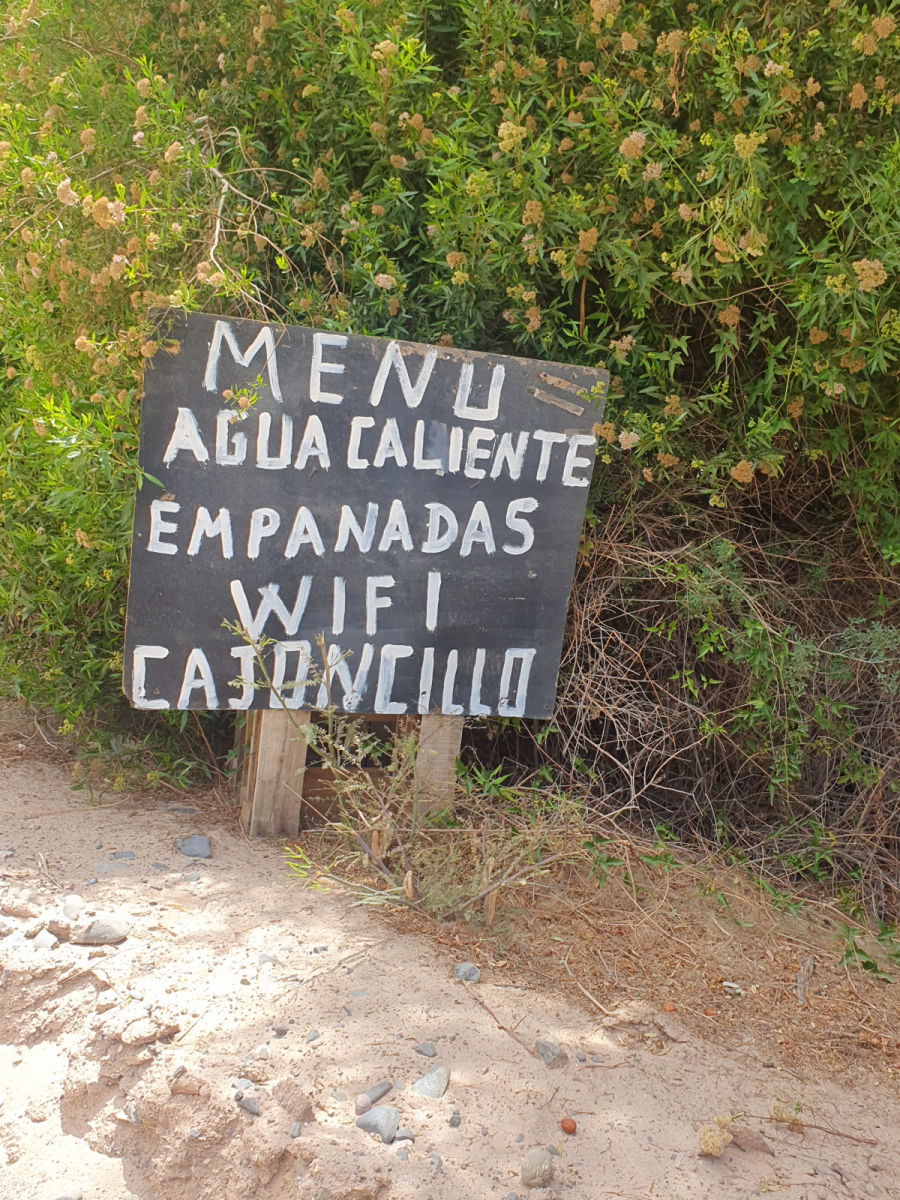 MENU =
AGUA CALIENTE
EMPANADAS
WIFI
CAJONCILLO